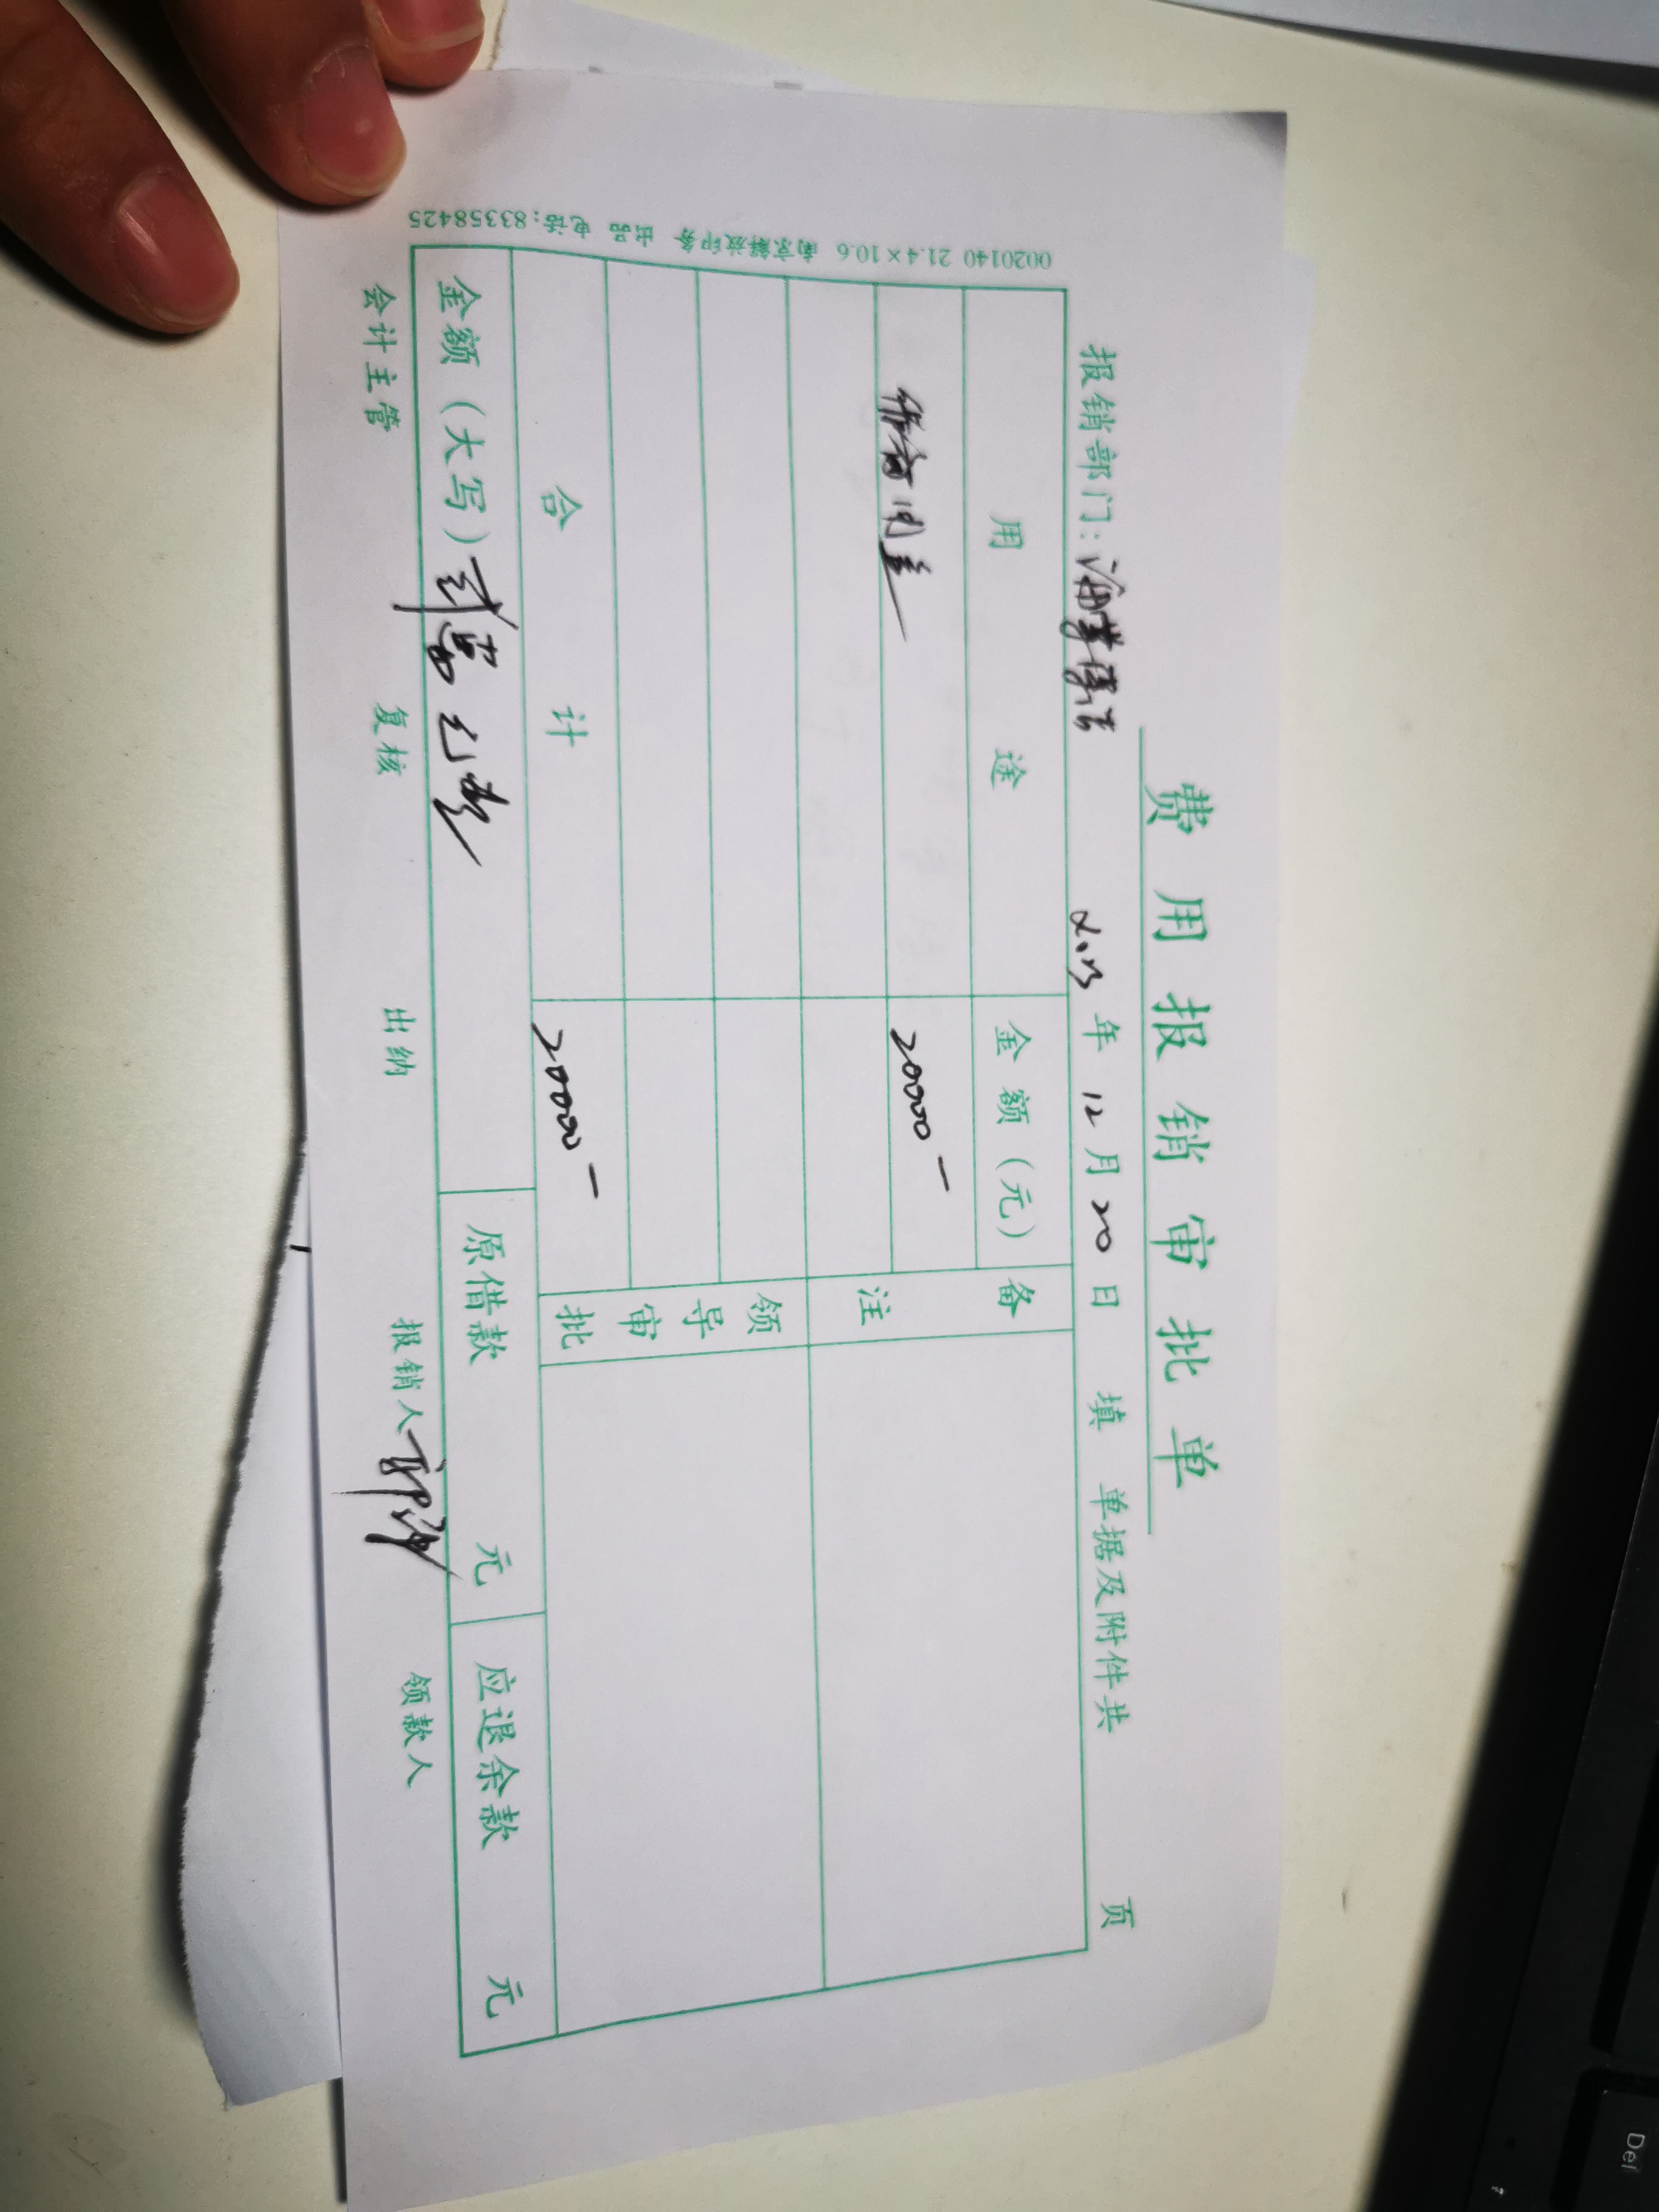 费用报销审批单
报销部门: 年 12 月 20 日 填 单据及附件共 页
用途 金额(元) 备注
20000-
领导审批
合计 20000-
金额(大写) 贰萬元整 原借款 元 应退余款 元
会计主管 复核 出纳 报销人 领款人
0020140 21.4×10.6 南京解放印务 出品 电话:83358425
Del